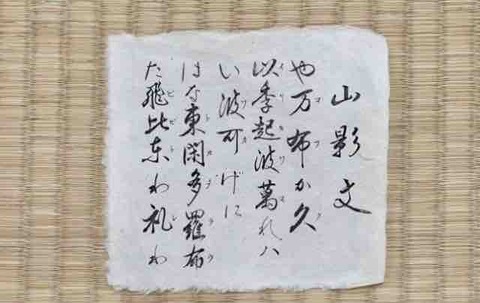 山影文
や万布か久
以季起波萬れハ
い波可げに
はな東閑多羅布
た飛比东わ礼わ